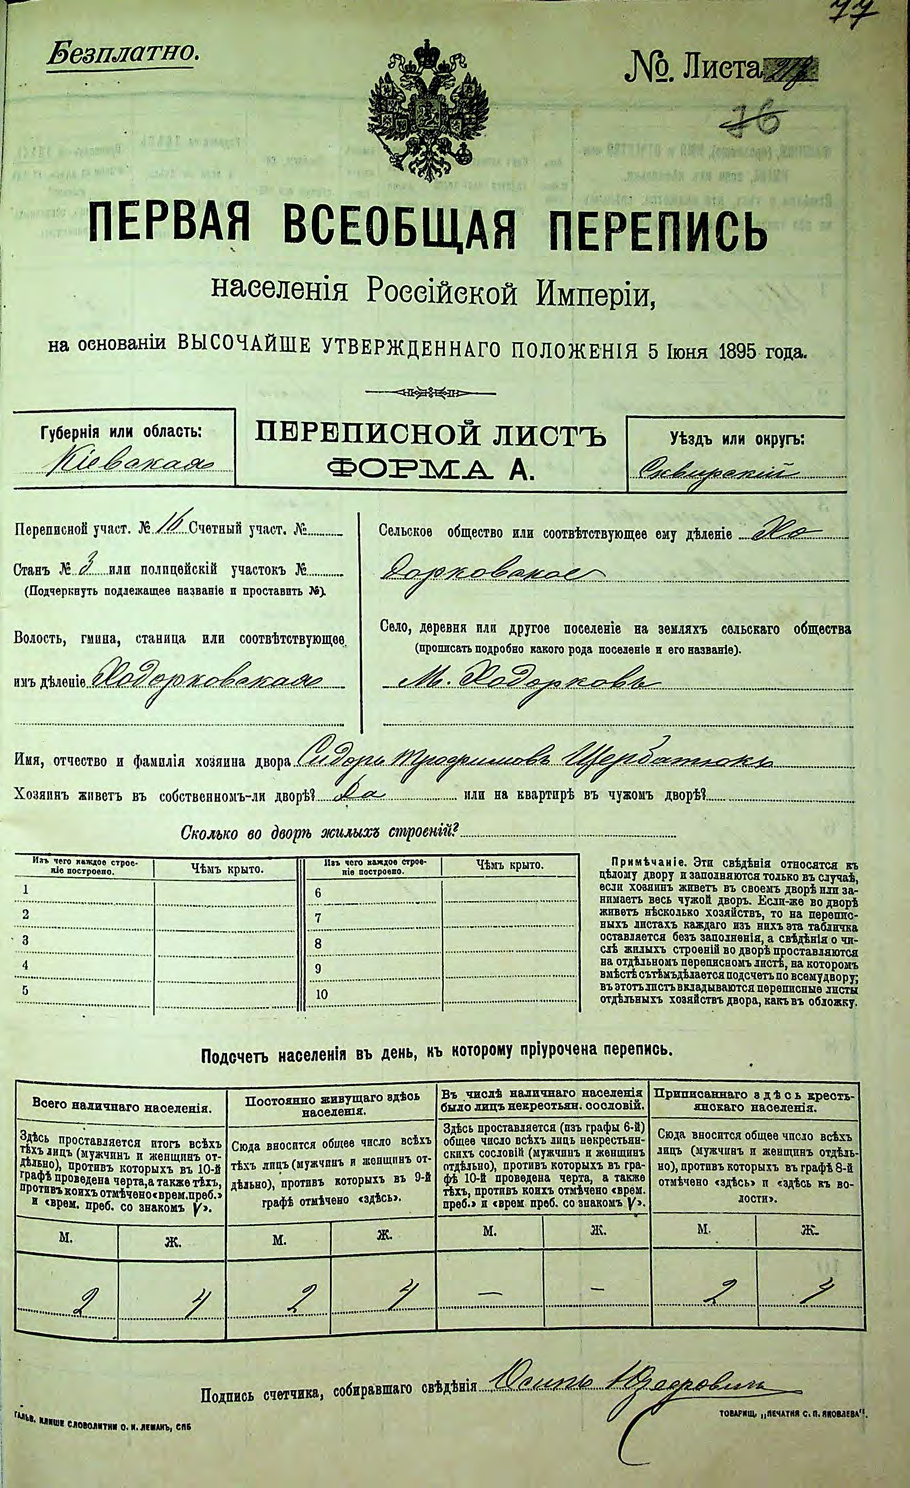 77
Безплатно.
№. Листа
76
ПЕРВАЯ ВСЕОБЩАЯ ПЕРЕПИСЬ
населенія Россійской Имперіи,
на основаніи ВЫСОЧАЙШЕ УТВЕРЖДЕННАГО ПОЛОЖЕНІЯ 5 Іюня 1895 года.
Губернія или область:
Кіевская
ПЕРЕПИСНОЙ ЛИСТЪ
ФОРМА А.
Уѣздъ или округъ:
Сквирскій
Переписной участ. № 16 Счетный участ. №
Станъ № 3 или полицейскій участокъ №
(Подчеркнуть подлежащее названіе и проставить №).
Волость, гмина, станица или соотвѣтствующее
имъ дѣленіе Ходорковская
Сельское общество или соотвѣтствующее ему дѣленіе Хо
дорковское
Село, деревня или другое поселеніе на земляхъ сельскаго общества
(прописать подробно какого рода поселеніе и его названіе).
М. Ходорковъ
Имя, отчество и фамилія хозяина двора Сидоръ Трофимовъ Щербатюкъ
Хозяинъ живетъ въ собственномъ-ли дворѣ? Да или на квартирѣ въ чужомъ дворѣ?
Сколько во дворѣ жилыхъ строеній?
Изъ чего каждое строе-
ніе построено.
Чѣмъ крыто.
1
2
3
4
5
Изъ чего каждое строе-
ніе построено.
Чѣмъ крыто.
6
7
8
9
10
Примѣчаніе. Эти свѣдѣнія относятся къ
цѣлому двору и заполняются только въ случаѣ,
если хозяинъ живетъ въ своемъ дворѣ или за-
нимаетъ весь чужой дворъ. Если-же во дворѣ
живетъ нѣсколько хозяйствъ, то на перепис-
ныхъ листахъ каждаго изъ нихъ эта табличка
оставляется безъ заполненія, а свѣдѣнія о чи-
слѣ жилыхъ строеній во дворѣ проставляются
на отдѣльномъ переписномъ листѣ, на которомъ
вмѣстѣ съ тѣмъ дѣлается подсчетъ по всему двору;
въ этотъ листъ вкладываются переписные листы
отдѣльныхъ хозяйствъ двора, какъ въ обложку.
Подсчетъ населенія въ день, къ которому пріурочена перепись.
Всего наличнаго населенія.
Здѣсь проставляется итогъ всѣхъ
тѣхъ лицъ (мужчинъ и женщинъ от-
дѣльно), противъ которыхъ въ 10-й
графѣ проведена черта, а также тѣхъ,
противъ коихъ отмѣчено «врем. преб.»
и «врем. преб. со знакомъ V».
М.
Ж.
2
4
Постоянно живущаго здѣсь
населенія.
Сюда вносится общее число всѣхъ
тѣхъ лицъ (мужчинъ и женщинъ от-
дѣльно), противъ которыхъ въ 9-й
графѣ отмѣчено «здѣсь».
М.
Ж.
2
4
Въ числѣ наличнаго населенія
было лицъ некрестьян. сословій.
Здѣсь проставляется (изъ графы 6-й)
общее число всѣхъ лицъ некрестьян-
скихъ сословій (мужчинъ и женщинъ
отдѣльно), противъ которыхъ въ гра-
фѣ 10-й проведена черта, а также
тѣхъ, противъ коихъ отмѣчено «врем.
преб.» и «врем. преб. со знакомъ V».
М.
Ж.
—
—
Приписаннаго здѣсь кресть-
янскаго населенія.
Сюда вносится общее число всѣхъ
лицъ (мужчинъ и женщинъ отдѣль-
но), противъ которыхъ въ графѣ 8-й
отмѣчено «здѣсь» и «здѣсь къ во-
лости».
М.
Ж.
2
4
Подпись счетчика, собиравшаго свѣдѣнія Осипъ
ГАЛЬВ. КЛИШЕ СЛОВОЛИТНИ О. И. ЛЕМАНЪ, СПБ
ТОВАРИЩ. „ПЕЧАТНЯ С. П. ЯКОВЛЕВА".